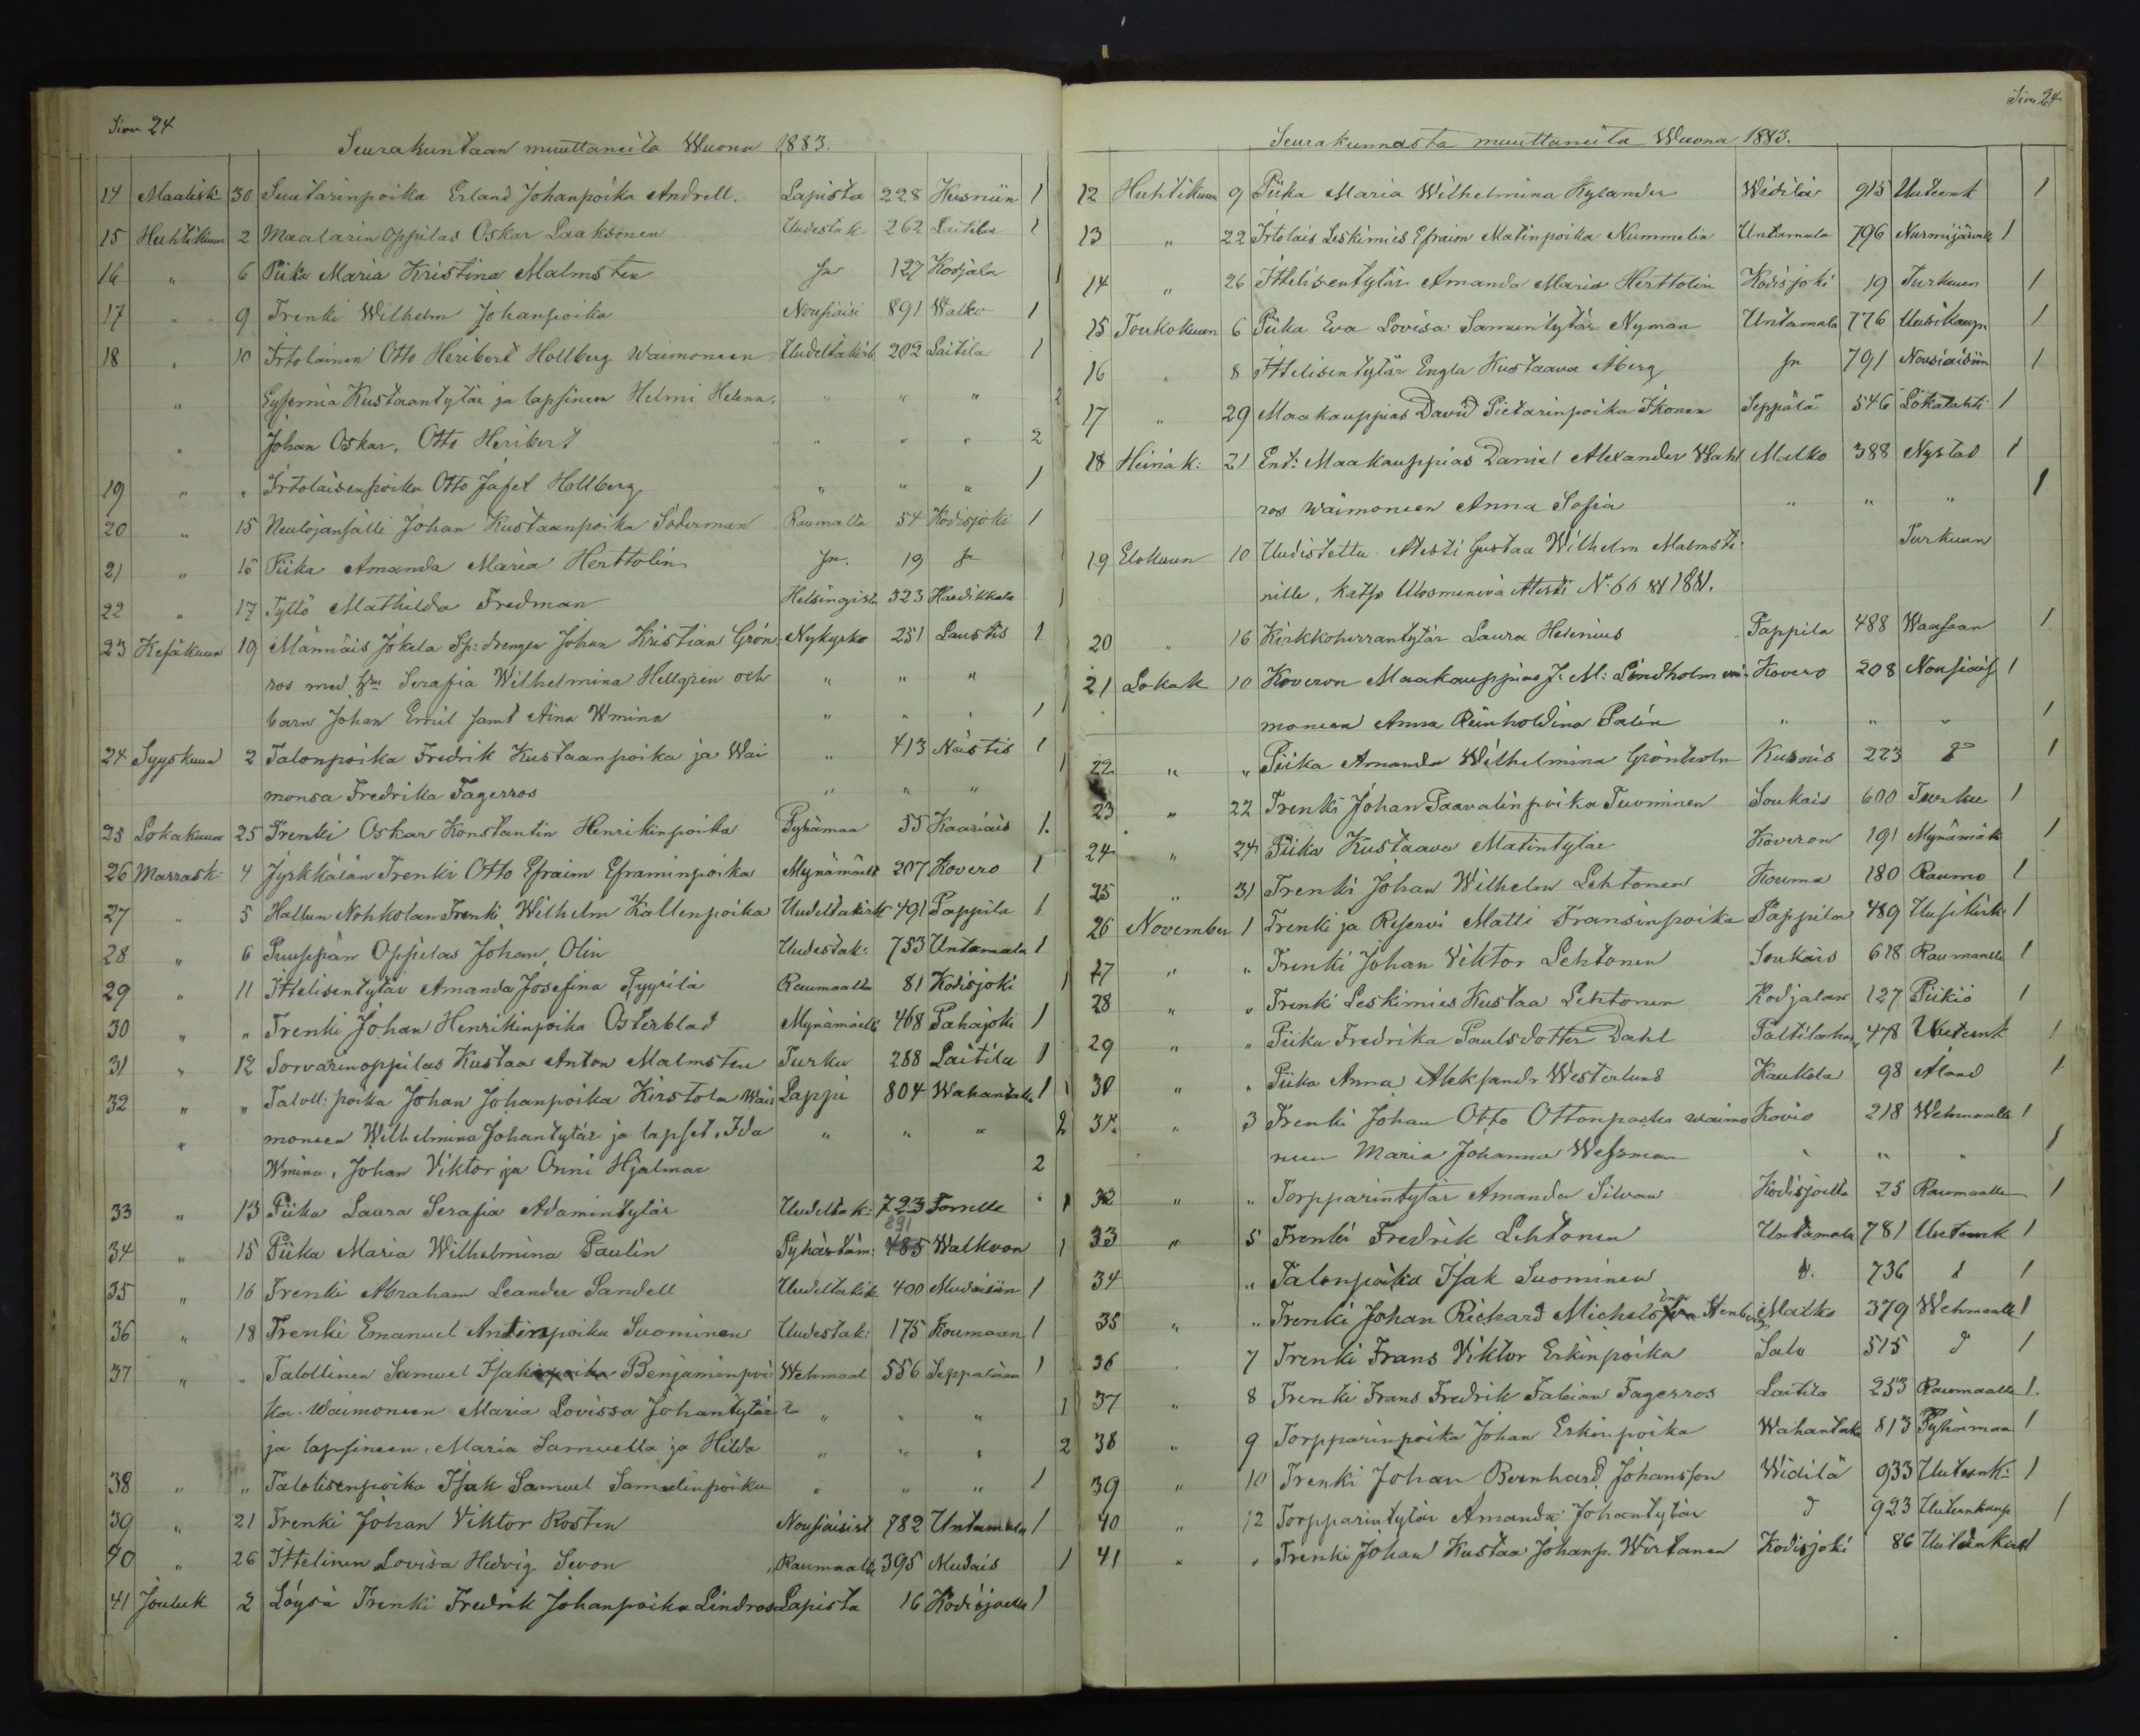 Sivu 24
Seurakuntaan muuttaneita Wuona 1883.
14 Maalisk 30 Suutarinpoika Erland Johanpoika Andrell. Lapista 228 Kusniin 1
15 Huhtikuun 2 Maalarin Oppilas Oskar Laaksonen Uudestak. 262 Laitila 1
16 " 6 Piika Maria Kristina Malmsten 127 Kodjala 1
17 " 9 Trenki Wilhelm Johanpoika Nousiaisi 891 Walko 1
18 " 10 Irtolainen Otto Heribert Hollberg Waimoneen Uudeltakirk 202 Laitila 1
" Eufemia Kustaantytär ja lapsineen Helmi Helena, " " " 2
" Johan Oskar, Otto Heribert " " " " 2
19 " " Irtolaisenpoika Otto Jafet Hollberg " " " 1
20 " 15 Neulojansälli Johan Kustaanpoika Söderman Raumalta 54 Kodisjoki 1
21 " 15 Piika Amanda Maria Herttolin 19 1
22 " 17 Tyttö Mathilda Fredman Helsingistä 323 Haudikkala 1
23 Kesäkuun 19 Männäis Jokela Sp: drengen Johan Kristian Grön- Nykyrko 251 Laustis 1
ros med Serafia Wilhelmina Hellgren och " " " 1
barn Johan Emil samt Aina Wmina " " " 1
24 Syyskuun 2 Talonpoika Fredrik Kustaanpoika ja Wai " 413 Nästis 1
monsa Fredrika Fagerros " " " 1
25 Lokakuun 25 Trenki Oskar Konstantin Henrikinpoika Pyhämaa 55 Kaariais 1.
26 Marrask: 4 Jyrkkälän Trenki Otto Efraim Eframinpoika Mynämäelt 207 Kovero 1
27 " 5 Hallun Nohkolan Trenki Wilhelm Kallenpoika Uudeltakirk 491 Pappila 1
28 " 6 Puuppän Oppilas Johan Olin Uudestak: 753 Untamala 1
29 " 11 Ittelisentytär Amanda Josefina Pyyrilä Raumaalta 81 Kodisjoki 1
30 " " Trenki Johan Henrikinpoika Österblad Mynämäelt 468 Pahajoki 1
31 " 12 Sorvarinoppilas Kustaa Anton Malmsten Turku 288 Laitila 1
32 " " Taloll: poika Johan Johanpoika Kirstola Wai Lappi 804 Wahantalla 1
" moneen Wilhelmina Johantytär ja lapset, Ida " " " 2
Wmina, Johan Viktor ja Onni Hjalmar 2
33 " 13 Piika Laura Serafia Adamintytär Uudeltak: 723 Torrella 1
34 " 15 Piika Maria Wilhelmina Paulin Pyhästäm: 891 485 Walkoon 1
35 " 16 Trenki Abraham Leander Sandell Uudeltakirk 400 Mudaisiin 1
36 " 18 Trenki Emanuel Antinpoika Suominen Uudestak: 175 Koumaan 1
37 " " Talollinen Samuel Isakinpoika Benjaminpoi Wehmaal 556 Seppälään 1
ka. Waimoneen Maria Lovissa Johantytär " " " 1
ja lapsineen, Maria Samuella ja Hilda " " " 2
38 " " Talolisenpoika Isak Samuel Samuelinpoika " " " 1
39 " 21 Trenki Johan Viktor Rosten Nousiaisist 782 Untamala 1
40 " 26 Ittelinen Lovisa Hedvig Sevon Raumaalta 395 Mudais 1
41 Jouluk 2 Löysä Trenki Fredrik Johanpoika Lindros Lapista 16 Kodisjoelle 1
Sivu 24
Seurakunnasta muuttaneita Wuona 1883.
12 Huhtikuun 9 Piika Maria Wilhelmina Kylander Widilä 915 Uuteenk 1
13 " 22 Irtolais Leskimies Efraim Matinpoika Nummelin Untamala 796 Nurmijärvelle 1
14 " 26 Ittelisentytär Amanda Maria Herttolin Kodisjoki 19 Turkuun 1
15 Toukokuun 6 Piika Eva Lovisa Samuntytär Nyman Untamala 776 Uusikaup 1
16 " 8 Ittelisentytär Engla Kustaava Åberg 791 Nousiaisiin 1
17 " 29 Maakauppias David Pietarinpoika Ikonen Seppälä 546 Lokalahti 1
18 Heinäk: 21 Ent: Maakauppias Daniel Alexander Wahl Malko 388 Nystad 1
ros waimoneen Anna Sofia " " " 1
19 Elokuun 10 Uudistettu Atesti Gustaa Wilhelm Malmste- Turkuun
nille, Katso Ulosmenevä Atesti No 66 1881.
20 " 16 Kirkkoherrantytär Laura Helenius Pappila 488 Waasaan 1
21 Lokak 10 Koveron Maakauppias J. M: Lindholm wai- Kovero 208 Nousiais 1
moneen Anna Reinholdina Palin " " " 1
22 " " Piika Amanda Wilhelmina Grönholm Kusnis 223 1
23 " 22 Trenki Johan Paavalinpoika Tuominen Soukais 600 Turku 1
24 " 24 Piika Kustaava Matintytär Koveron 191 Mynämäk 1
25 " 31 Trenki Johan Wilhelm Lehtonen Kouma 180 Raumo 1
26 November 1 Trenki ja Reservi Matti Fransinpoika Pappila 489 Uusikirk 1
27 " " Trenki Johan Viktor Lehtonen Soukais 618 Raumaalle 1
28 " " Trenki Leskimies Kustaa Lehtonen Kodjalan 127 Piikiö 1
29 " " Piika Fredrika Paulsdotter Dahl Paltilahan 478 Uuteenk 1
30 " " Piika Anna Aleksandr Westerlund Kaukola 98 Åland 1
31. " 3 Trenki Johan Otto Ottonpoika waimo Kovio 218 Wehmaalle 1
neen Maria Johanna Wessman " " " 1
32 " " Torpparintytär Amanda Silvan Kodisjoella 25 Raumaalle 1
33 " 5 Trenki Fredrik Lehtonen Untamala 781 Uuteenk 1
34 " Talonpoika Isak Suominen d. 736 d 1
35 " " Trenki Johan Richard Michels Stenberg Malko 379 Wehmaalle 1
36 " 7 Trenki Frans Viktor Erkinpoika Salo 515 d 1
37 " 8 Trenki Frans Fredrik Fabian Fagerros Laitila 253 Raumaalle 1.
38 " 9 Torpparinpoika Johan Erkinpoika Wahantaka 813 Pyhämaa 1
39 " 10 Trenki Johan Bernhard Johansson Widilä 933 Uuteenk: 1
40 " 12 Torpparintytär Amanda Johantytär d 923 Uuteenkaup 1
41 " " Trenki Johan Kustaa Johanp. Wirtanen Kodisjoki 86 Uuteenkirk 1